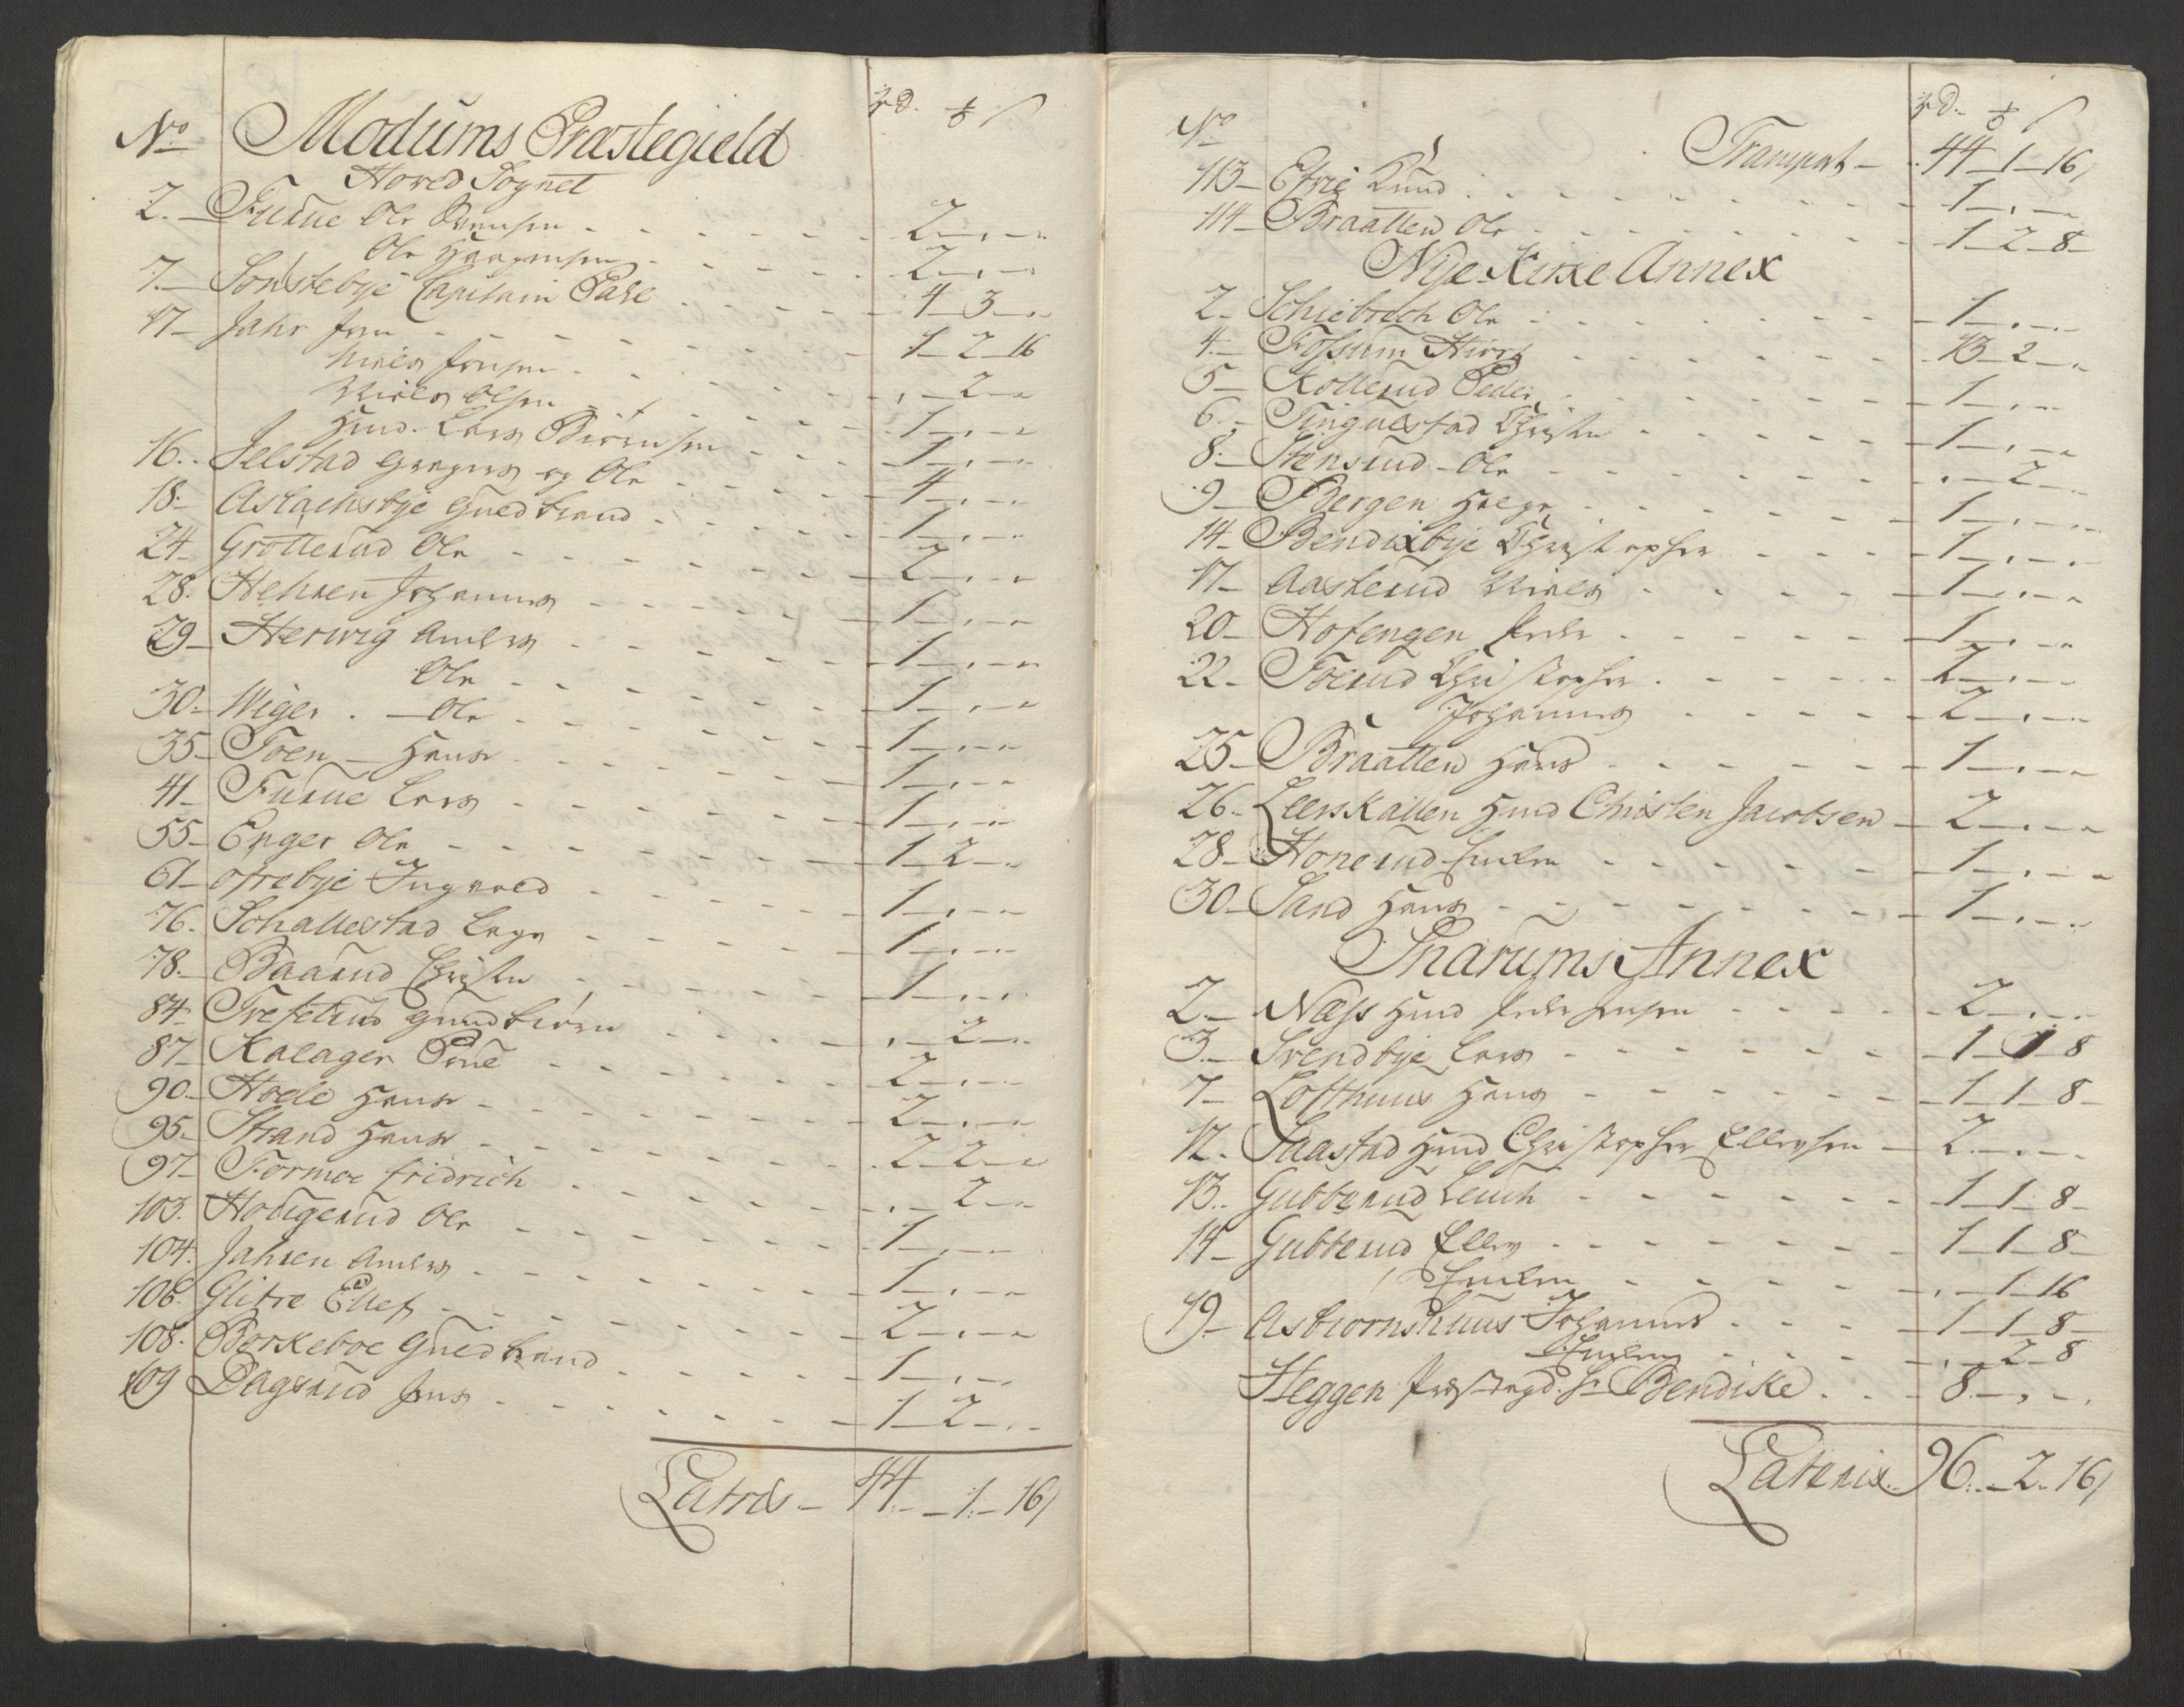 No Modums Præstegield rd. ort ß
Hoved Sognet
2. Furue Ole Svensen 2 " "
Ole Haagensen 2 " "
7. Sønstebye Capitain Pase 4 3 "
17 Jahr Jon 1 2 16
Niels Jonsen " 2 "
Niels Olsen 1 " "
Huusmd. Lars Biørnsen 1 " "
16. Seelstad Gregers og Ole 4 " "
18 Aslachsbye Guldbrand 1 " "
24 Grøtterud Ole 2 " "
28. Hehren Johannes 1 " "
29 Herwig Anders 1 " "
Ole 1 " "
30 Wiger Ole 1 " "
35 Toen Hans 1 " "
41 Furue Lars 1 " "
55 Enger Ole 1 2 "
61 Ofrebye Ingvold 1 " "
76. Schallestad Lage 1 " "
78. Baarud Christen 1 " "
84 Trefelsrud Gundbiørn " 2 "
87 Kalager Povel 2 " "
90 Hoele Hans 2 " "
95. Strand Hans 2 2 "
97 Formoe Fridrich " 2 "
103. Hougerud Ole 1 " "
104. Jahren Anders 1 " "
106. Glitre Ellef 2 " "
108. Borkeboe Guldbrand 1 " "
109 Dagsrud Jens 1 2 "
Lateris 44 1 16

No rd. ort ß
Transport 44 1 16
113 Efrie Knud 1 " "
114 Braatten Ole 1 2 8
Nye Kirke Annex
2. Schiebrech Ole 1 " "
4. Fossum Hiort 13 2 "
5 Kollerud Peder 1 " "
6. Tingelstad Christen 1 " "
8. Stensrud Ole " 2 "
9 Bergen Helge 1 " "
14. Bendixbye Christopher 1 " "
17 Aasterud Niels 1 " "
20 Hofengen Peder 1 " "
22. Toerud Christopher 2 " "
Johannes 2 " "
25 Braatten Hans 1 " "
26. Leerskallen Huusmd Christen Jacobsen 2 " "
28 Honerud Engebret 1 " "
30 Sand Hans 1 " "
Snarums Annex
2. Næss Huusmd Peder Jensen 2 " "
3. Svendbye Lars 1 1 8
7 Lofthuus Hans 1 1 8
12. Saastad Huusmd Christopher Ellevsen 2 " "
13. Gubberud 1 1 8
14 Gubberud Ellev 1 1 8
" 1 16
19 Asbiornshuus Johannes 1 1 8
" 2 8
Heggen Præstegd. Hr Bendike 8 " "
Lateris 96 2 16